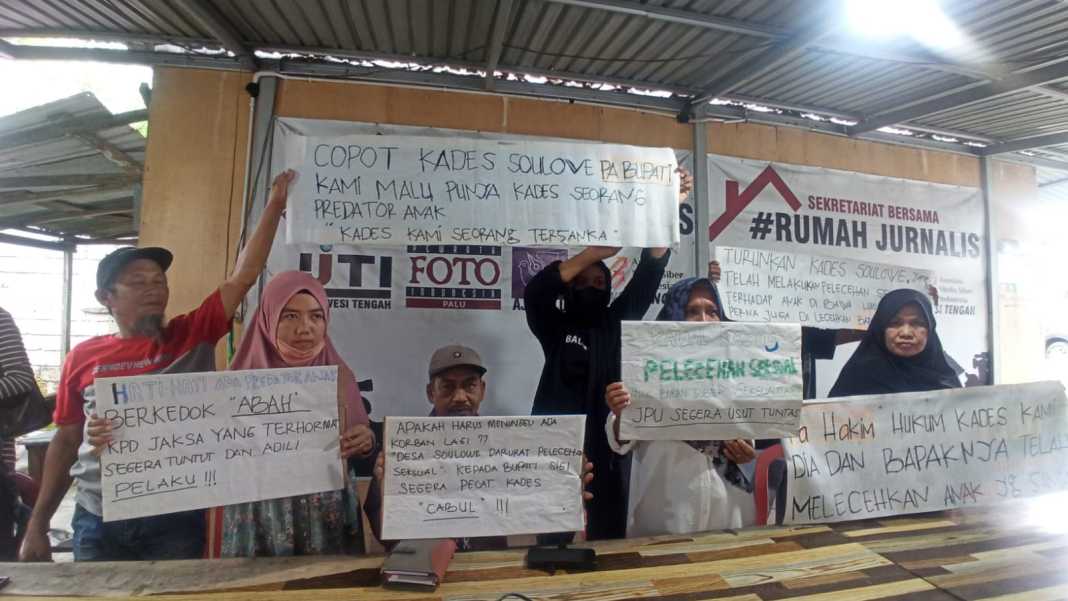 COPOT KADES SOULOVE PA BUPATI
KAMI MALU PUNJA KADES SEORANG
PREDATOR ANAK
"KADES KAMI SEORANG TERSANKA"
SEKRETARIAT BERSAMA
#RUMAH JURNALIS
FOTO
INDONESIA
PALU
TURUNKAN KADES SOULOVE
TELAH MELAKUKAN PELECEHAN
TERHADAP ANAK DI BAWA
PERNA JUGA DI LECEHKAN
SI TENGAH
HATI-HATI ADA PREDATOR ANAK
BERKEDOK "ABAH"
KPD JAKSA YANG TERHORMAT
SEGERA TUNTUT DAN ADILI
PELAKU !!!
APAKAH HARUS MENUNGGU ADA
KORBAN LAGI ??
"DESA SOULOWE DARURAT PELECEHAN
SEKSUAL". KEPADA BUPATI SIGI
SEGERA PECAT KADES
"CABUL" !!!
PELECEHAN SEKSUAL
JPU SEGERA USUT TUNTAS
HAKIM HUKUM KADES KAMI
DIA DAN BAPAKNJA TELAH
MELECEHKAN ANAK